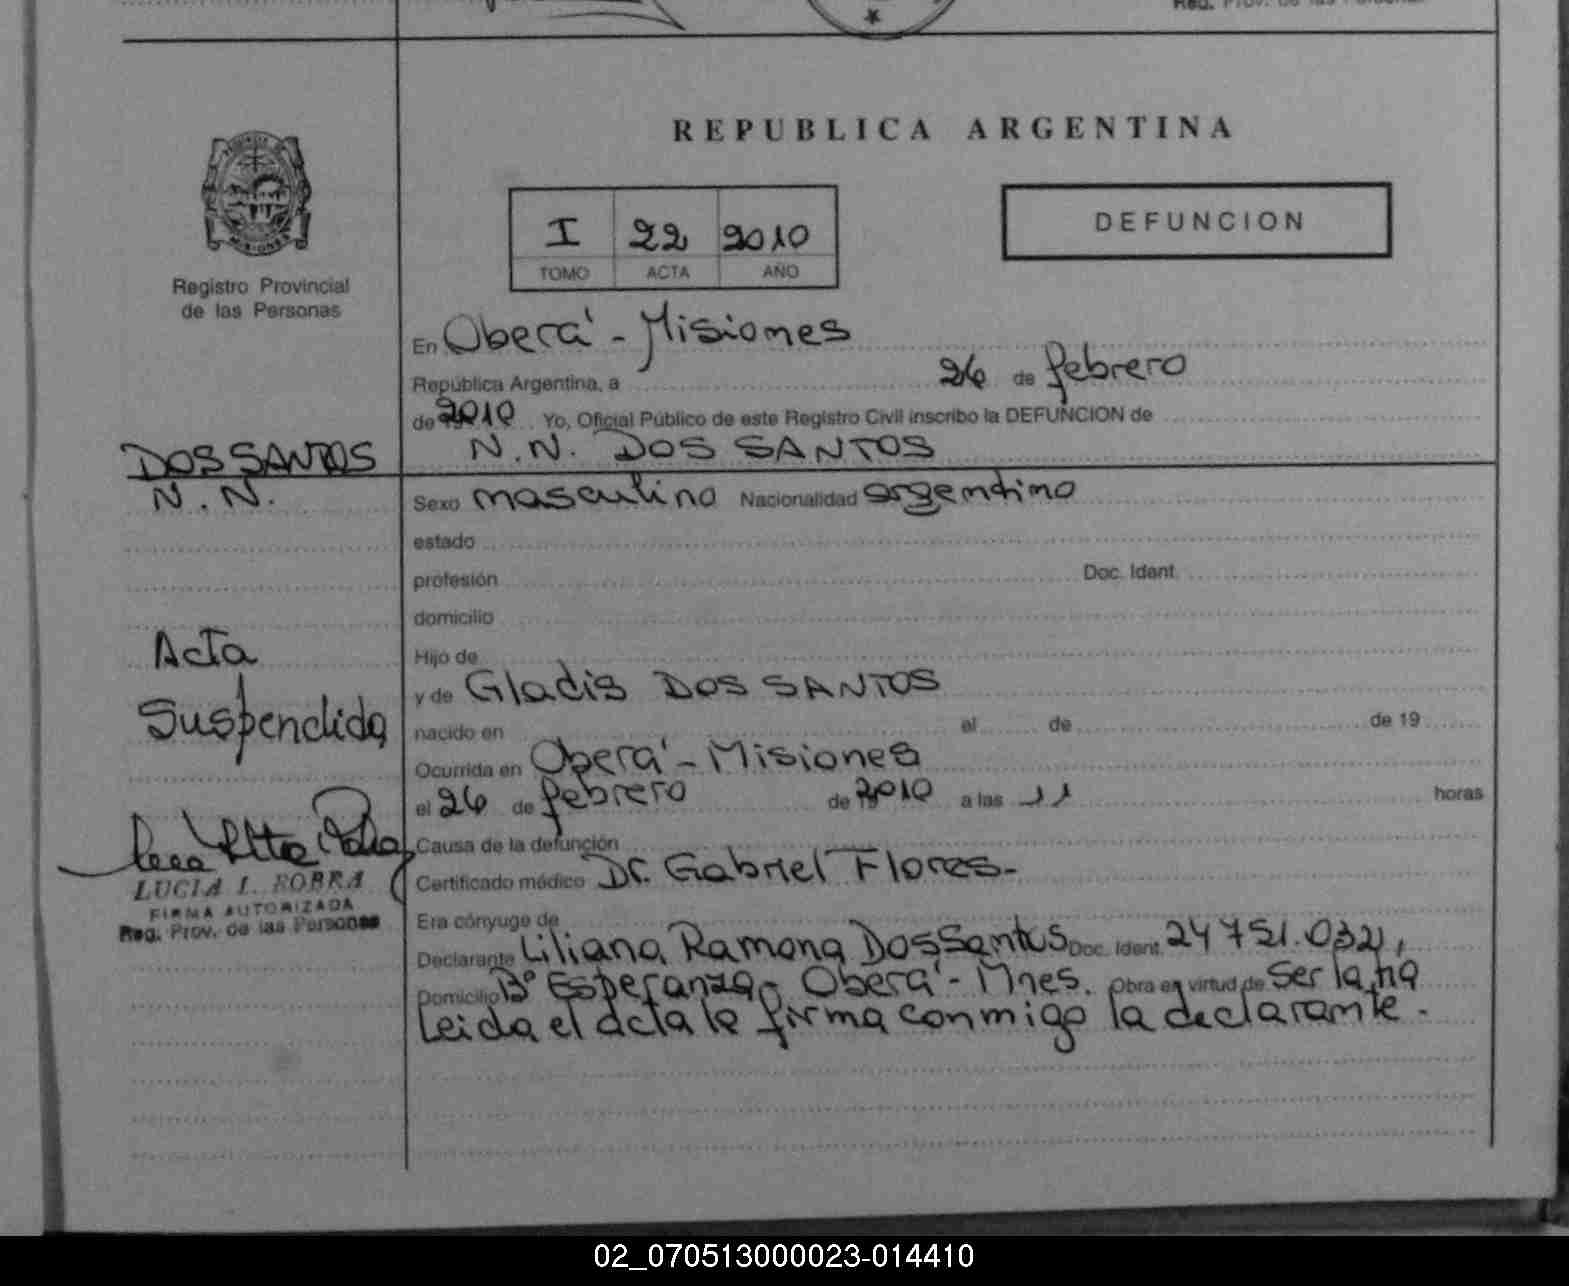 Reg. Prov. de las Personas
REPUBLICA ARGENTINA
I 22 2010
TOMO ACTA AÑO
DEFUNCION
Registro Provincial
de las Personas
En Oberá - Misiones
República Argentina, a 26 de febrero
de 2010 Yo, Oficial Público de este Registro Civil inscribo la DEFUNCION de
N.N. DOS SANTOS
DOS SANTOS
N.N.
Sexo masculino Nacionalidad argentino
estado
profesión Doc. Ident.
domicilio
Hijo de
y de Gladis DOS SANTOS
nacido en el de de 19
Ocurrida en Oberá - Misiones
el 26 de febrero de 2010 a las 11 horas
Causa de la defunción
Certificado médico Dr. Gabriel Flores-
Era cónyuge de
Declarante Liliana Ramona DosSantos Doc. Ident. 24751.032,
Domicilio Bº Esperanza - Oberá - Mnes. Obra en virtud de ser la tia
Leida el acta la firma conmigo la declarante.
Acta
Suspendida
LUCIA I. BOBRA
FIRMA AUTORIZADA
Reg. Prov. de las Personas
02_070513000023-014410